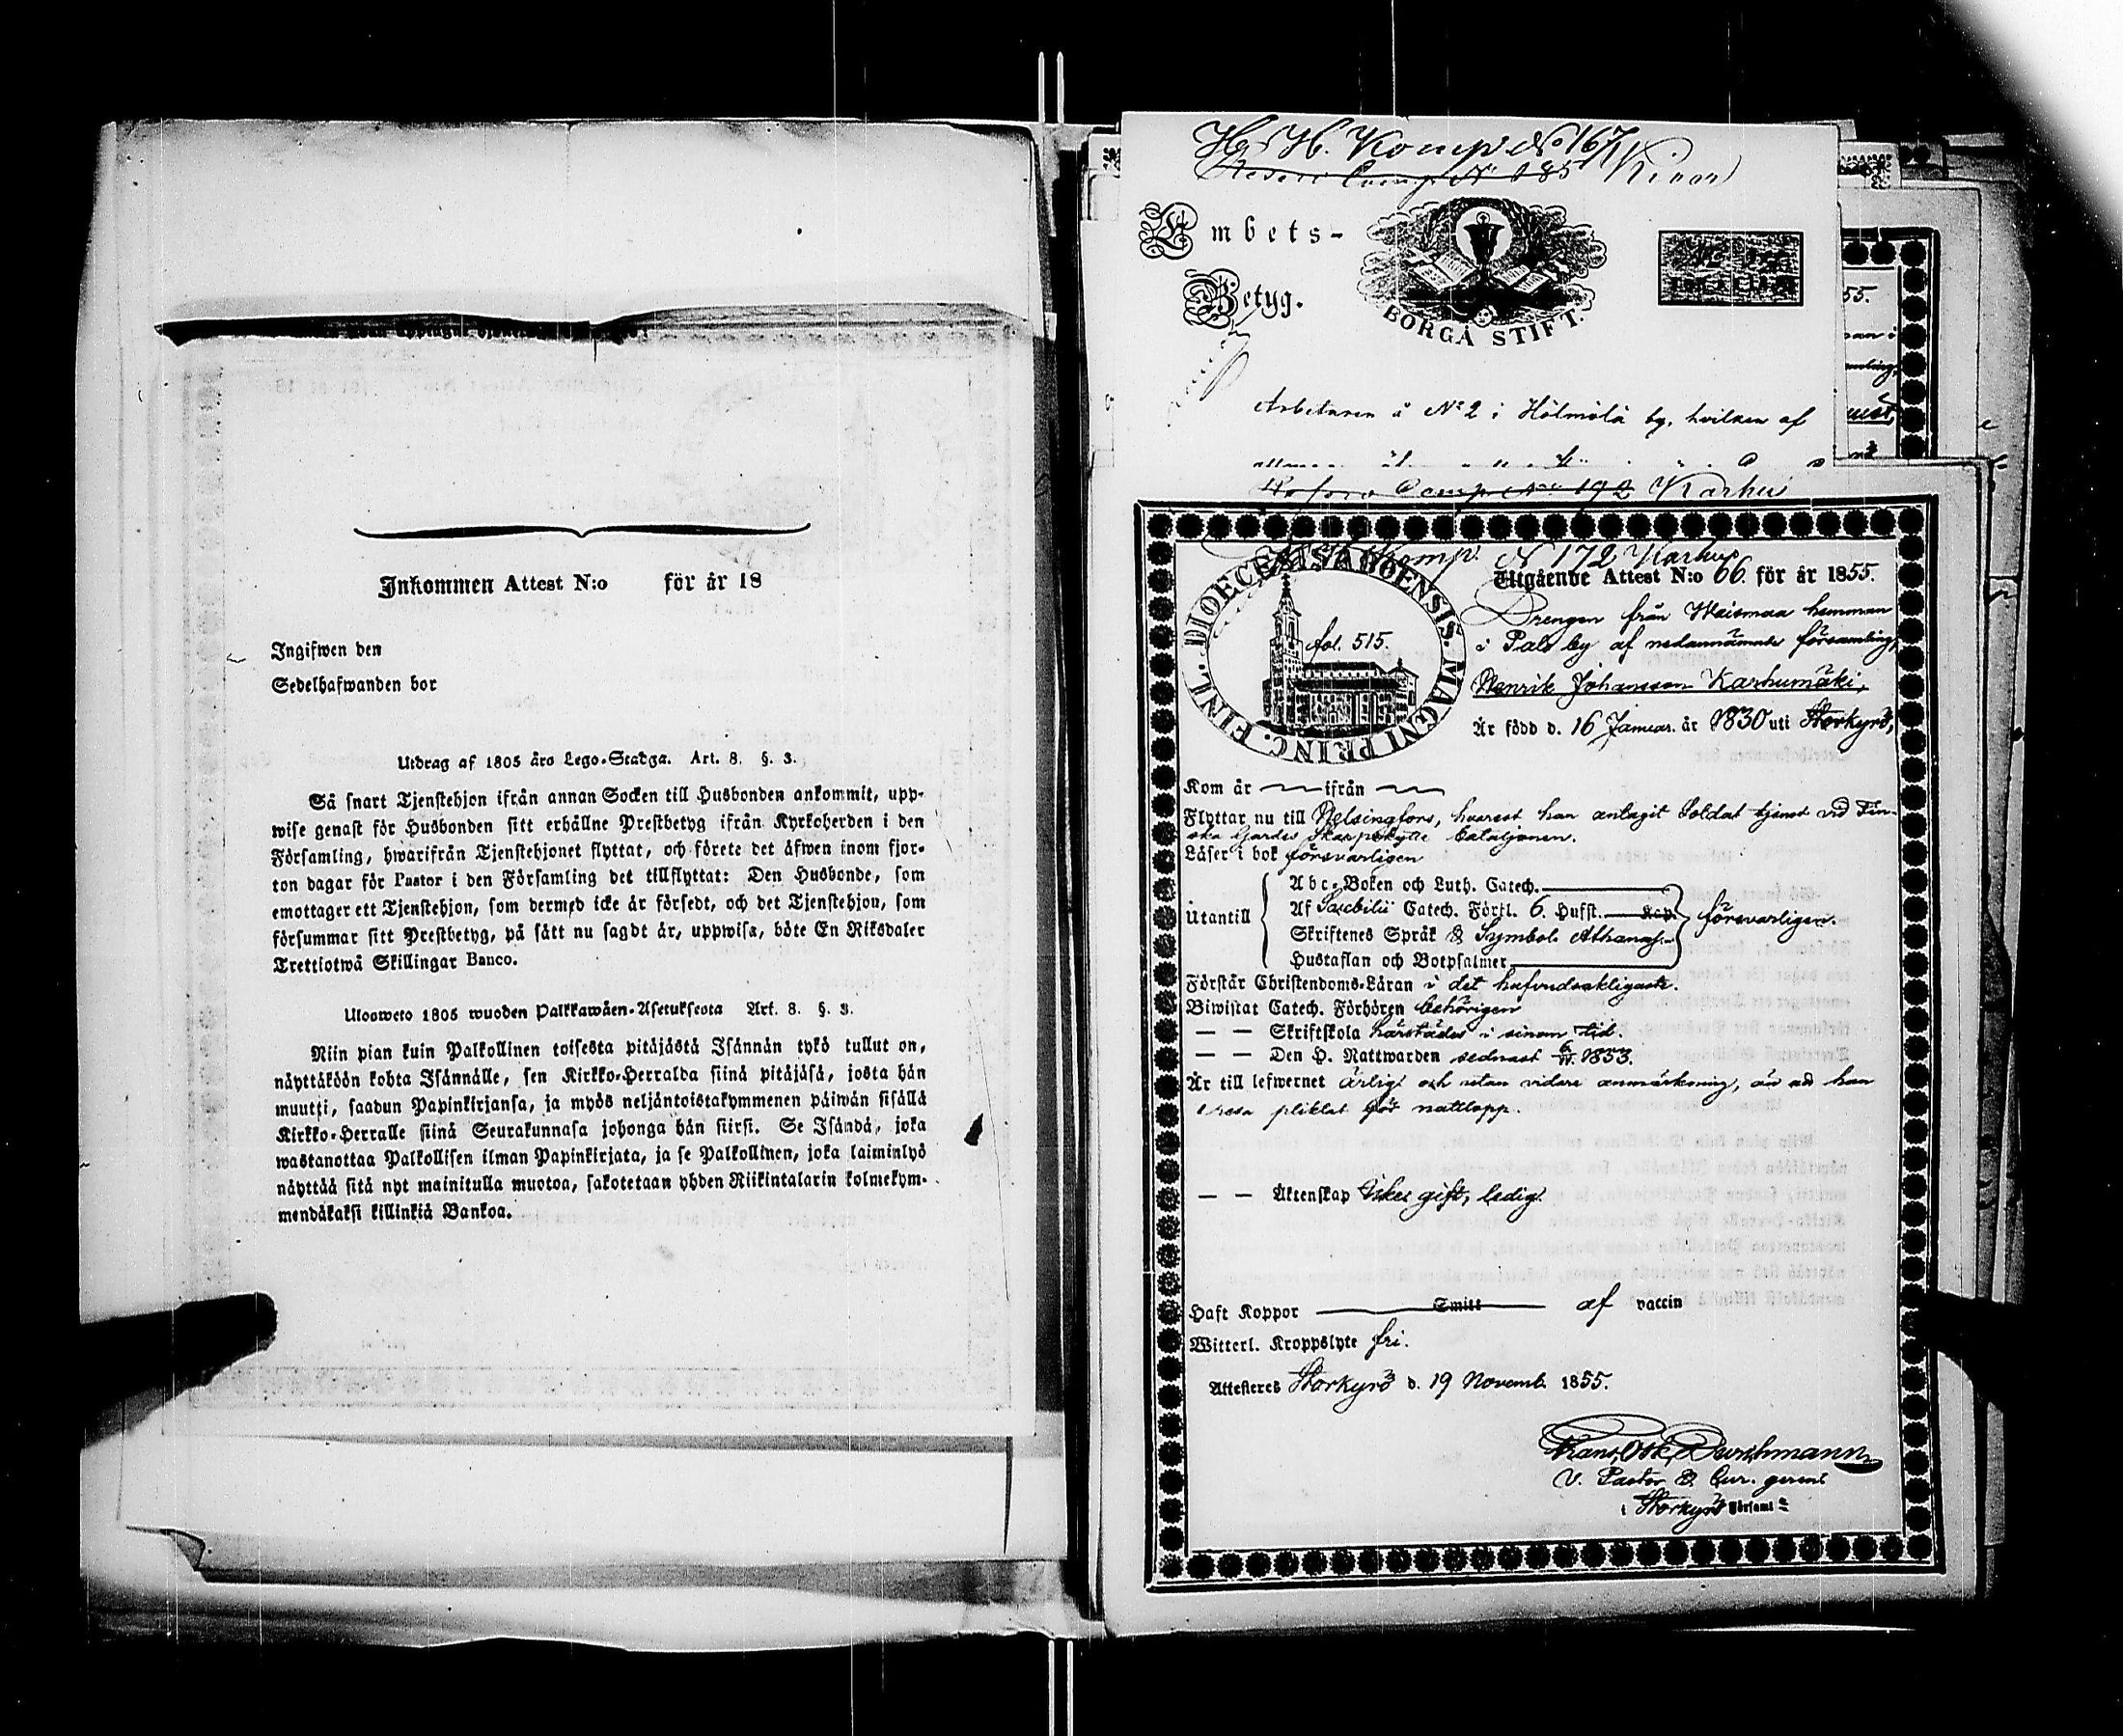 Inkommen Attest N:o för år 18
Ingifwen den
Sedelhafwanden bor
Utdrag af 1805 års Lego-Stadga. Art. 8. §. 3.
Så snart Tjenstehjon ifrån annan Socken till Husbonden ankommit, upp-
wise genast för Husbonden sitt erhållne Prestbetyg ifrån Kyrkoherden i den
Församling, hwarifrån Tjenstehjonet flyttat, och förete det äfwen inom fjor-
ton dagar för Pastor i den Församling det tillflyttat: Den Husbonde, som
emottager ett Tjenstehjon, som dermed icke är försedt, och det Tjenstehjon, som
försummar sitt Prestbetyg, på sätt nu sagdt är, uppwisa, böte En Riksdaler
Trettiotwå Skillingar Banco.
Ulosweto 1805 wuoden Palkkawäen-Asetuksesta Art. 8. §. 3.
Niin pian kuin Palkollinen toisesta pitäjästä Isännän tykö tullut on,
näyttäköön kohta Isännälle, sen Kirkko-Herralda siinä pitäjäsä, josta hän
muutti, saadun Papinkirjansa, ja myös neljäntoistakymmenen päiwän sisällä
Kirkko-Herralle siinä Seurakunnasa johonga hän siirsi. Se Isändä, joka
wastanottaa Palkollisen ilman Papinkirjata, ja se Palkollinen, joka laiminlyö
näyttää sitä nyt mainitulla muotoa, sakotetaan yhden Riikintalarin kolmekym-
mendäkaksi killinkiä Bankoa.
H. H. Komp. No 167
Comp. N 185 Kivari
Embets-
Betyg.
BORGÅ STIFT.
Arbetaren å No 2 i Hölmölä by, hvilken af
Comp. No 192 Karhu
Komp. N 172 Karhu
DIOECESIS ABOENSIS. MAGNI PRINC. FINL.
fol. 515.
Utgående Attest N:o 66. för år 1855.
Drengen från Waismaa hemman
i Palo by af nedannämnde församling,
Henrik Johansson Karhumäki,
Är född d. 16 Januar. år 1830 uti Storkyro,
Kom år — ifrån —
Flyttar nu till Helsingfors, hvarest han antagit Soldat tjenst vid Fin-
ska Gardes Skarpskytte bataljonen.
Läser i bok försvarligen
Utantill
Abc-Boken och Luth. Catech.
Af Svebilii Catech. Förkl. 6. Hufst. Kap.
Skriftenes Språk & Symbol. Athanas.
Hustaflan och Botpsalmer
försvarligen.
Förstår Christendoms-Läran i det hufvudsakligaste.
Biwistat Catech. Förhören behörigen
— — Skriftskola härstädes i sinom tid.
— — Den H. Nattwarden sednast 1853.
Är till lefwernet ärlig och utan vidare anmärkning, än att han
plicktat för nattlopp.
— — Äktenskap Icke gift, ledig.
Haft Koppor Smitt af vaccin
Witterl. Kroppslyte fri.
Attesteres Storkyro d. 19 Novemb. 1855.
Frans Osk. Durchmann
V. Pastor & Cur. gerens
i Storkyro Församl.